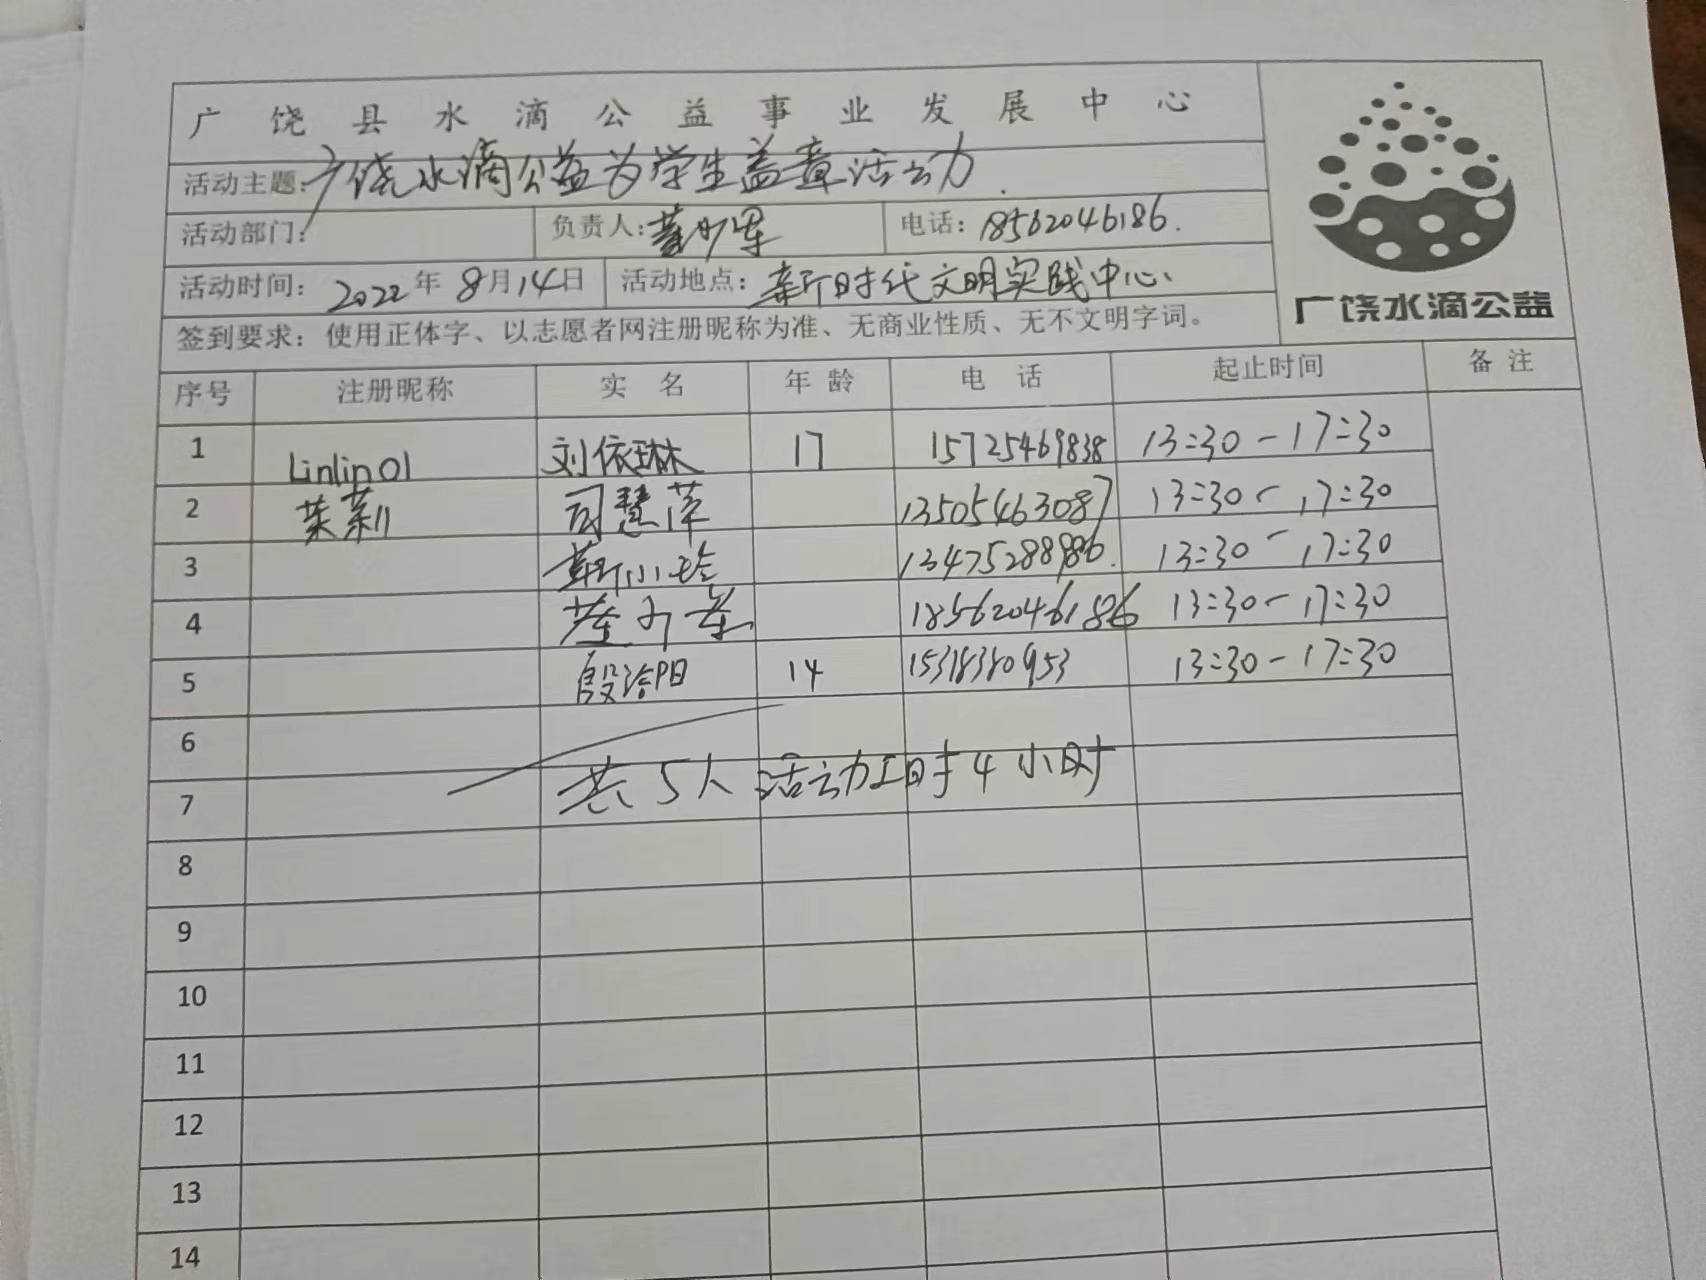 广饶县水滴公益事业发展中心
活动主题:广饶水滴公益为学生盖章活动.
活动部门: 负责人: 电话:18562046186.
活动时间: 2022年8月14日 活动地点:新时代文明实践中心
签到要求:使用正体字、以志愿者网注册昵称为准、无商业性质、无不文明字词。
广饶水滴公益
序号 注册昵称 实名 年龄 电话 起止时间 备注
1 Linlin01 刘依琳 17 15725469838 13:30-17:30
2 茉莉 司慧萍 13505463087 13:30-17:30
3 靳小玲 13475288986. 13:30-17:30
4 18562046186 13:30-17:30
5 殷洽阳 14 15318380953 13:30-17:30
6
共5人 活动工时4小时
7
8
9
10
11
12
13
14